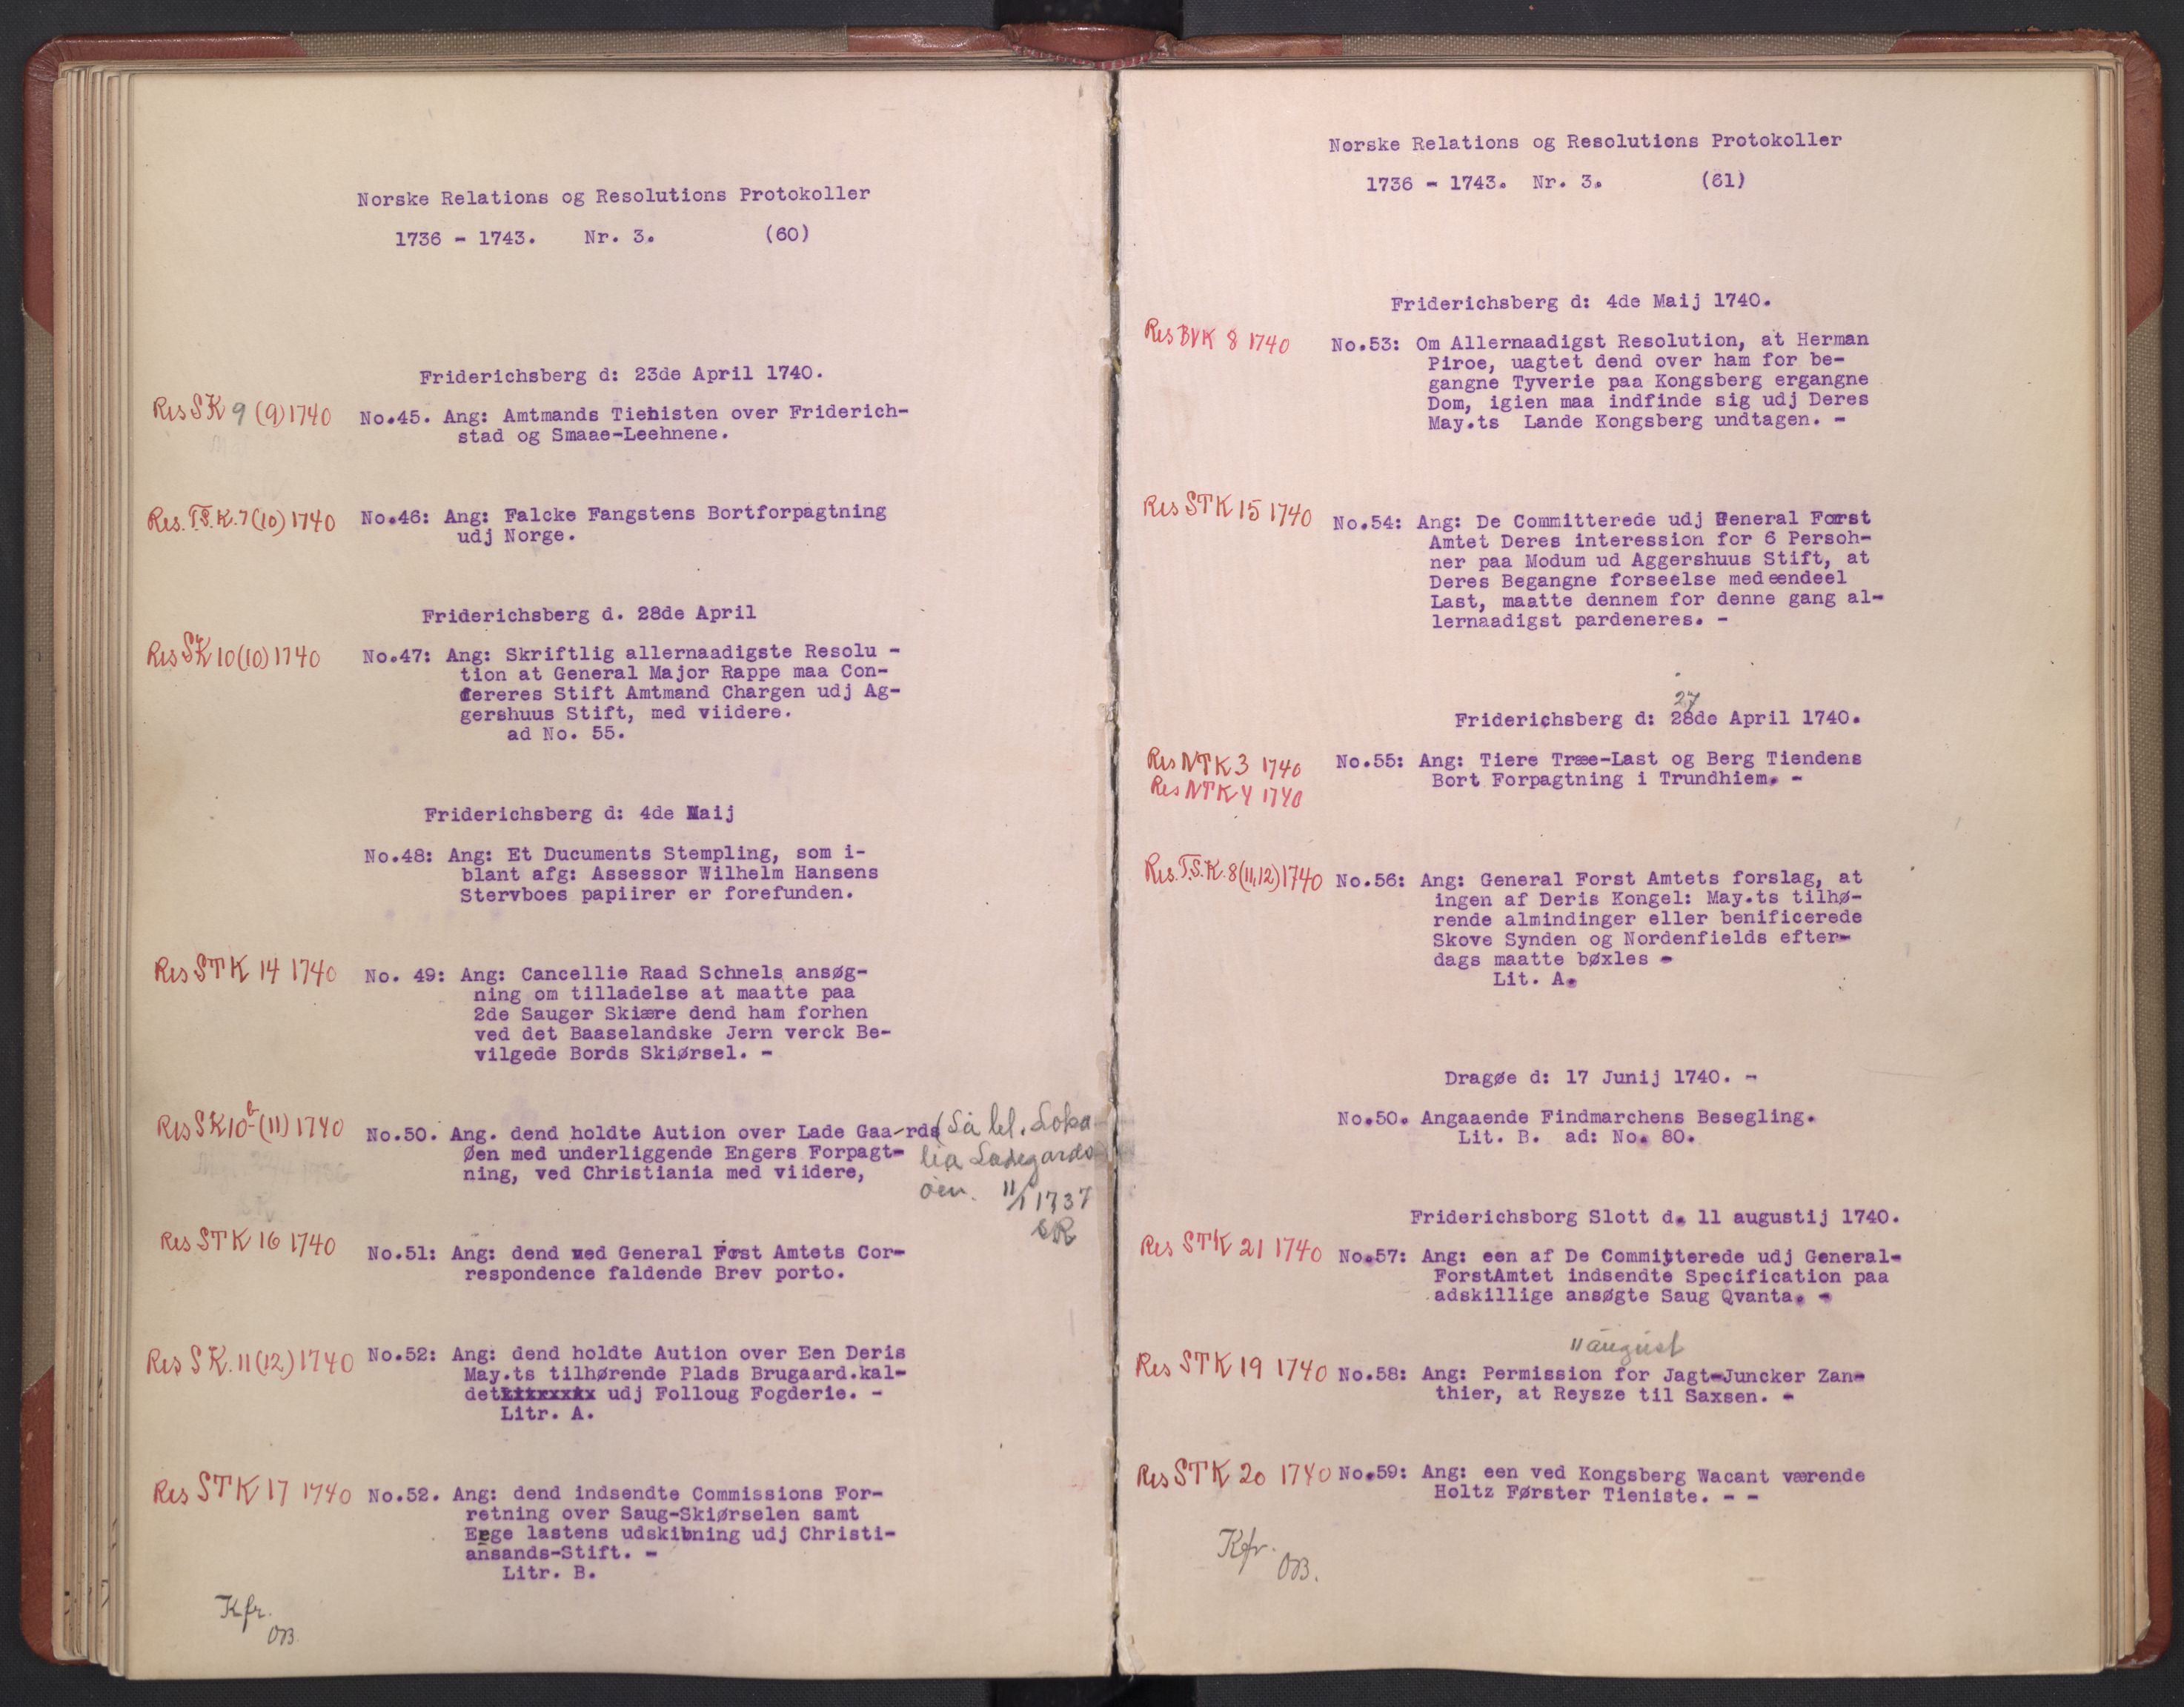 Norske Relations og Resolutions Protokoller
1736 - 1743. Nr. 3. (60)
Friderichsberg d: 23de April 1740.
Res SK 9 (9) 1740 No.45. Ang: Amtmands Tienisten over Friderich-
stad og Smaae-Leehnene.
Res. T.S.K. 7 (10) 1740 No.46: Ang: Falcke Fangstens Bortforpagtning
udj Norge.
Friderichsberg d. 28de April
Res SK 10 (10) 1740 No.47: Ang: Skriftlig allernaadigste Resolu -
tion at General Major Rappe maa Con-
fereres Stift Amtmand Chargen udj Ag-
gershuus Stift, med viidere.
ad No. 55.
Friderichsberg d: 4de Maij
No.48: Ang: Et Ducuments Stempling, som i-
blant afg: Assessor Wilhelm Hansens
Stervboes papiirer er forefunden.
Res STK 14 1740 No. 49: Ang: Cancellie Raad Schnels ansøg-
ning om tilladelse at maatte paa
2de Sauger Skiære dend ham forhen
ved det Baaselandske Jern verck Be-
vilgede Bords Skiørsel. -
Res SK 10 b (11) 1740 No.50. Ang. dend holdte Aution over Lade Gaards (Så bl. Loka-
Øen med underliggende Engers Forpagt- lia Ladegards-
ning, ved Christiania med viidere, øen. 11/1 1737
SR
Res STK 16 1740 No.51: Ang: dend med General Forst Amtets Cor-
respondence faldende Brev porto.
Res SK. 11 (12) 1740 No.52: Ang: dend holdte Aution over Een Deris
May.ts tilhørende Plads Brugaard.kal-
det udj Folloug Fogderie. -
Litr. A.
Res STK 17 1740 No.52. Ang: dend indsendte Commissions For-
retning over Saug-Skiørselen samt
Ege lastens udskibning udj Christi-
ansands-Stift. -
Litr. B.
Kfr.
OB.
Norske Relations og Resolutions Protokoller
1736 - 1743. Nr. 3. (61)
Friderichsberg d: 4de Maij 1740.
Res BVK 8 1740 No.53: Om Allernaadigst Resolution, at Herman
Piroe, uagtet dend over ham for be-
gangne Tyverie paa Kongsberg ergangne
Dom, igien maa indfinde sig udj Deres
May.ts Lande Kongsberg undtagen. -
Res STK 15 1740 No.54: Ang: De Committerede udj General Forst
Amtet Deres interession for 6 Persoh-
ner paa Modum ud Aggershuus Stift, at
Deres Begangne forseelse med eendeel
Last, maatte dennem for denne gang al-
lernaadigst pardeneres. -
27
Friderichsberg d: 28de April 1740.
Res NTK 3 1740 No.55: Ang: Tiere Træe-Last og Berg Tiendens
Res NTK 4 1740 Bort Forpagtning i Trundhiem. -
Res. T.S.K. 8 (11,12) 1740 No.56: Ang: General Forst Amtets forslag, at
ingen af Deris Kongel: May.ts tilhø-
rende almindinger eller benificerede
Skove Synden og Nordenfields efter-
dags maatte bøxles -
Lit. A.
Dragøe d: 17 Junij 1740. -
No.50. Angaaende Findmarchens Besegling.
Lit. B. ad: No. 80.
Friderichsborg Slott d. 11 augustij 1740.
Res STK 21 1740 No.57: Ang: een af De Committerede udj General-
ForstAmtet indsendte Specification paa
adskillige ansøgte Saug Qvanta. -
11 august
Res STK 19 1740 No.58: Ang: Permission for Jagt-Juncker Zan-
thier, at Reysze til Saxsen. -
Res STK 20 1740 No.59: Ang: een ved Kongsberg Wacant værende
Holtz Førster Tieniste. - -
Kfr.
OB.